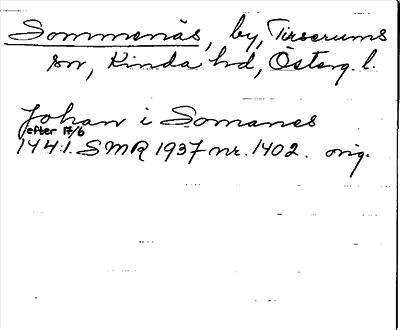 Sommenäs, by, Tirserums
sn, Kinda hd, Österg. l.
Johan i Somanes
efter 17/6
1441. SMR 1937 nr. 1402. orig.